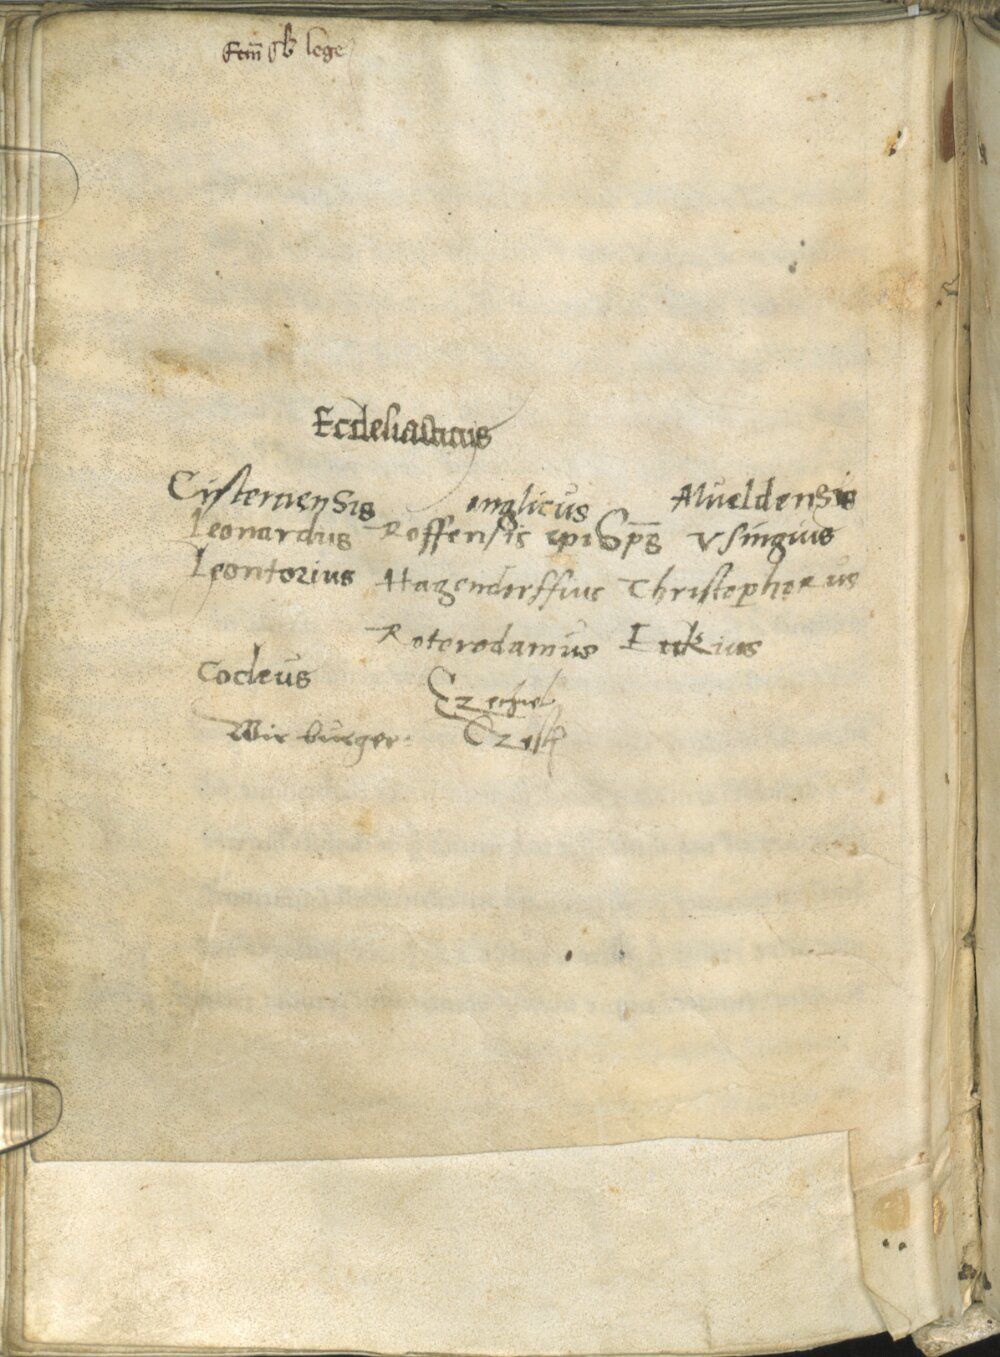 lege
Ecclesiasticus
Cisterciensis anglicus Mueldensis
Leonardus Roffensis epi Sp̄s Vsingius
Leontorius Hagendorffius Christophorus
Roterodamus Eckius
Cocleus Ezechiel
Wirburger Ezech